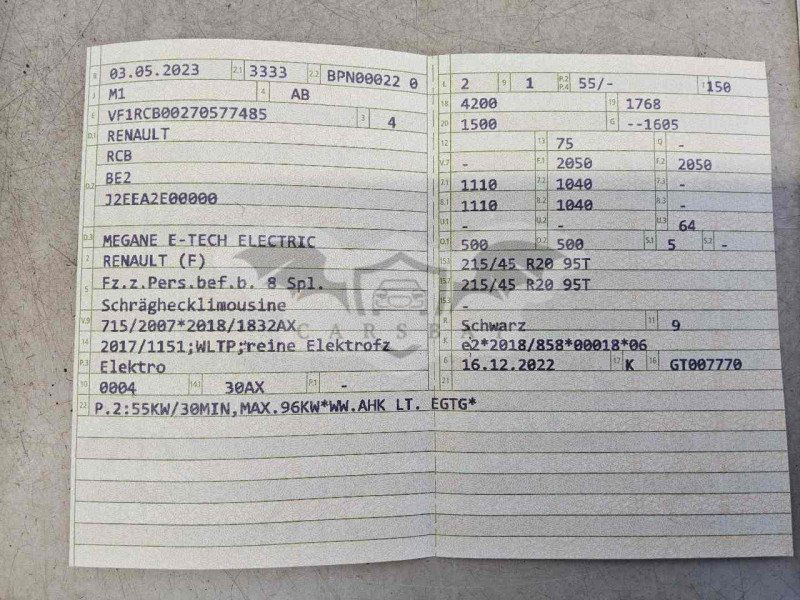 B 03.05.2023 2.1 3333 2.2 BPN00022 0
J M1 4 AB
E VF1RCB00270577485 3 4
D.1 RENAULT
RCB
D.2 BE2
J2EEA2E00000
D.3 MEGANE E-TECH ELECTRIC
2 RENAULT (F)
5 Fz.z.Pers.bef.b. 8 Spl.
Schräghecklimousine
V.9 715/2007*2018/1832AX
14 2017/1151;WLTP;reine Elektrofz
P.3 Elektro
10 0004 14.1 30AX P.1 -
22 P.2:55KW/30MIN,MAX.96KW*WW.AHK LT. EGTG*
L 2 9 1 P.2 P.4 55/- T 150
18 4200 19 1768
20 1500 G --1605
12 13 75 Q -
V.7 - F.1 2050 F.2 2050
7.1 1110 7.2 1040 7.3 -
8.1 1110 8.2 1040 8.3 -
U.1 - U.2 - U.3 64
O.1 500 O.2 500 S.1 5 S.2 -
15.1 215/45 R20 95T
15.2 215/45 R20 95T
15.3 -
R Schwarz 11 9
K e2*2018/858*00018*06
6 16.12.2022 17 K 16 GT007770
21
CARSBAY